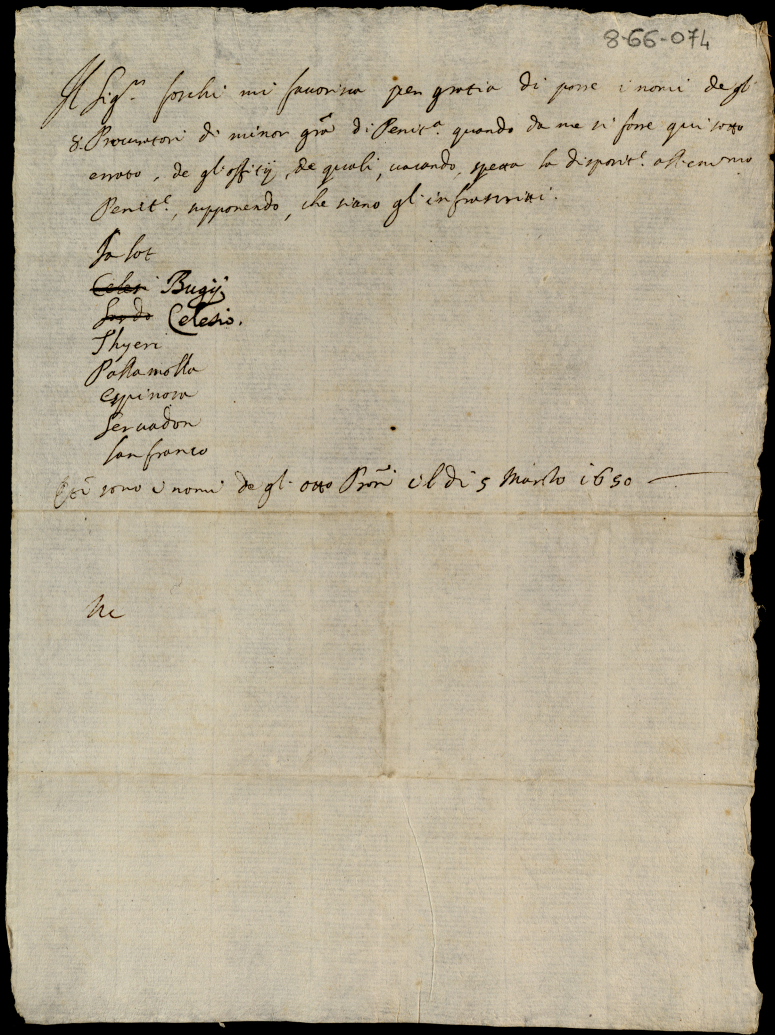 8-66-074
Il Sig.r foschi mi favorisca per gratia di porre i nomi de gl'
8. Procuratori di minor grã di Penit.a quando da me si fosse qui sotto
errato, de gl'offitij, de quali, vacando, spetta la disposit.e all'em.mo
Penit.e, supponendo, che siano gl'infrascritti.
Jalot
Celesi Bugij
Sordo Celesio.
Thyeri
Passamolla
Espinosa
Servadon
Lanfranco
sono i nomi de gl' otto Prõri il di 5 Marzo 1650